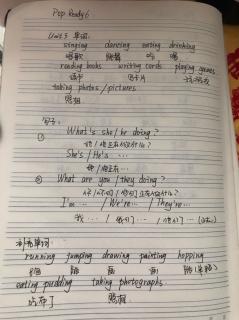 Pop Ready 6
Unit 3 单词:
singing dancing eating drinking
唱歌 跳舞 吃 喝
reading books writing cards playing games
读书 写卡片 玩游戏
taking photos / pictures
照相
句子:
① What's she / he doing?
她 / 他正在做什么?
She's / He's ...
她 / 他正在
② What are you / they doing?
你 / 你们 / 他们正在做什么?
I'm ... / We're ... / They're ...
我 ... / 我们 ... / 他们 ...
补充单词:
running jumping drawing painting hopping
跑 跳 画 画 跳
eating pudding taking photographs
吃布丁 照相